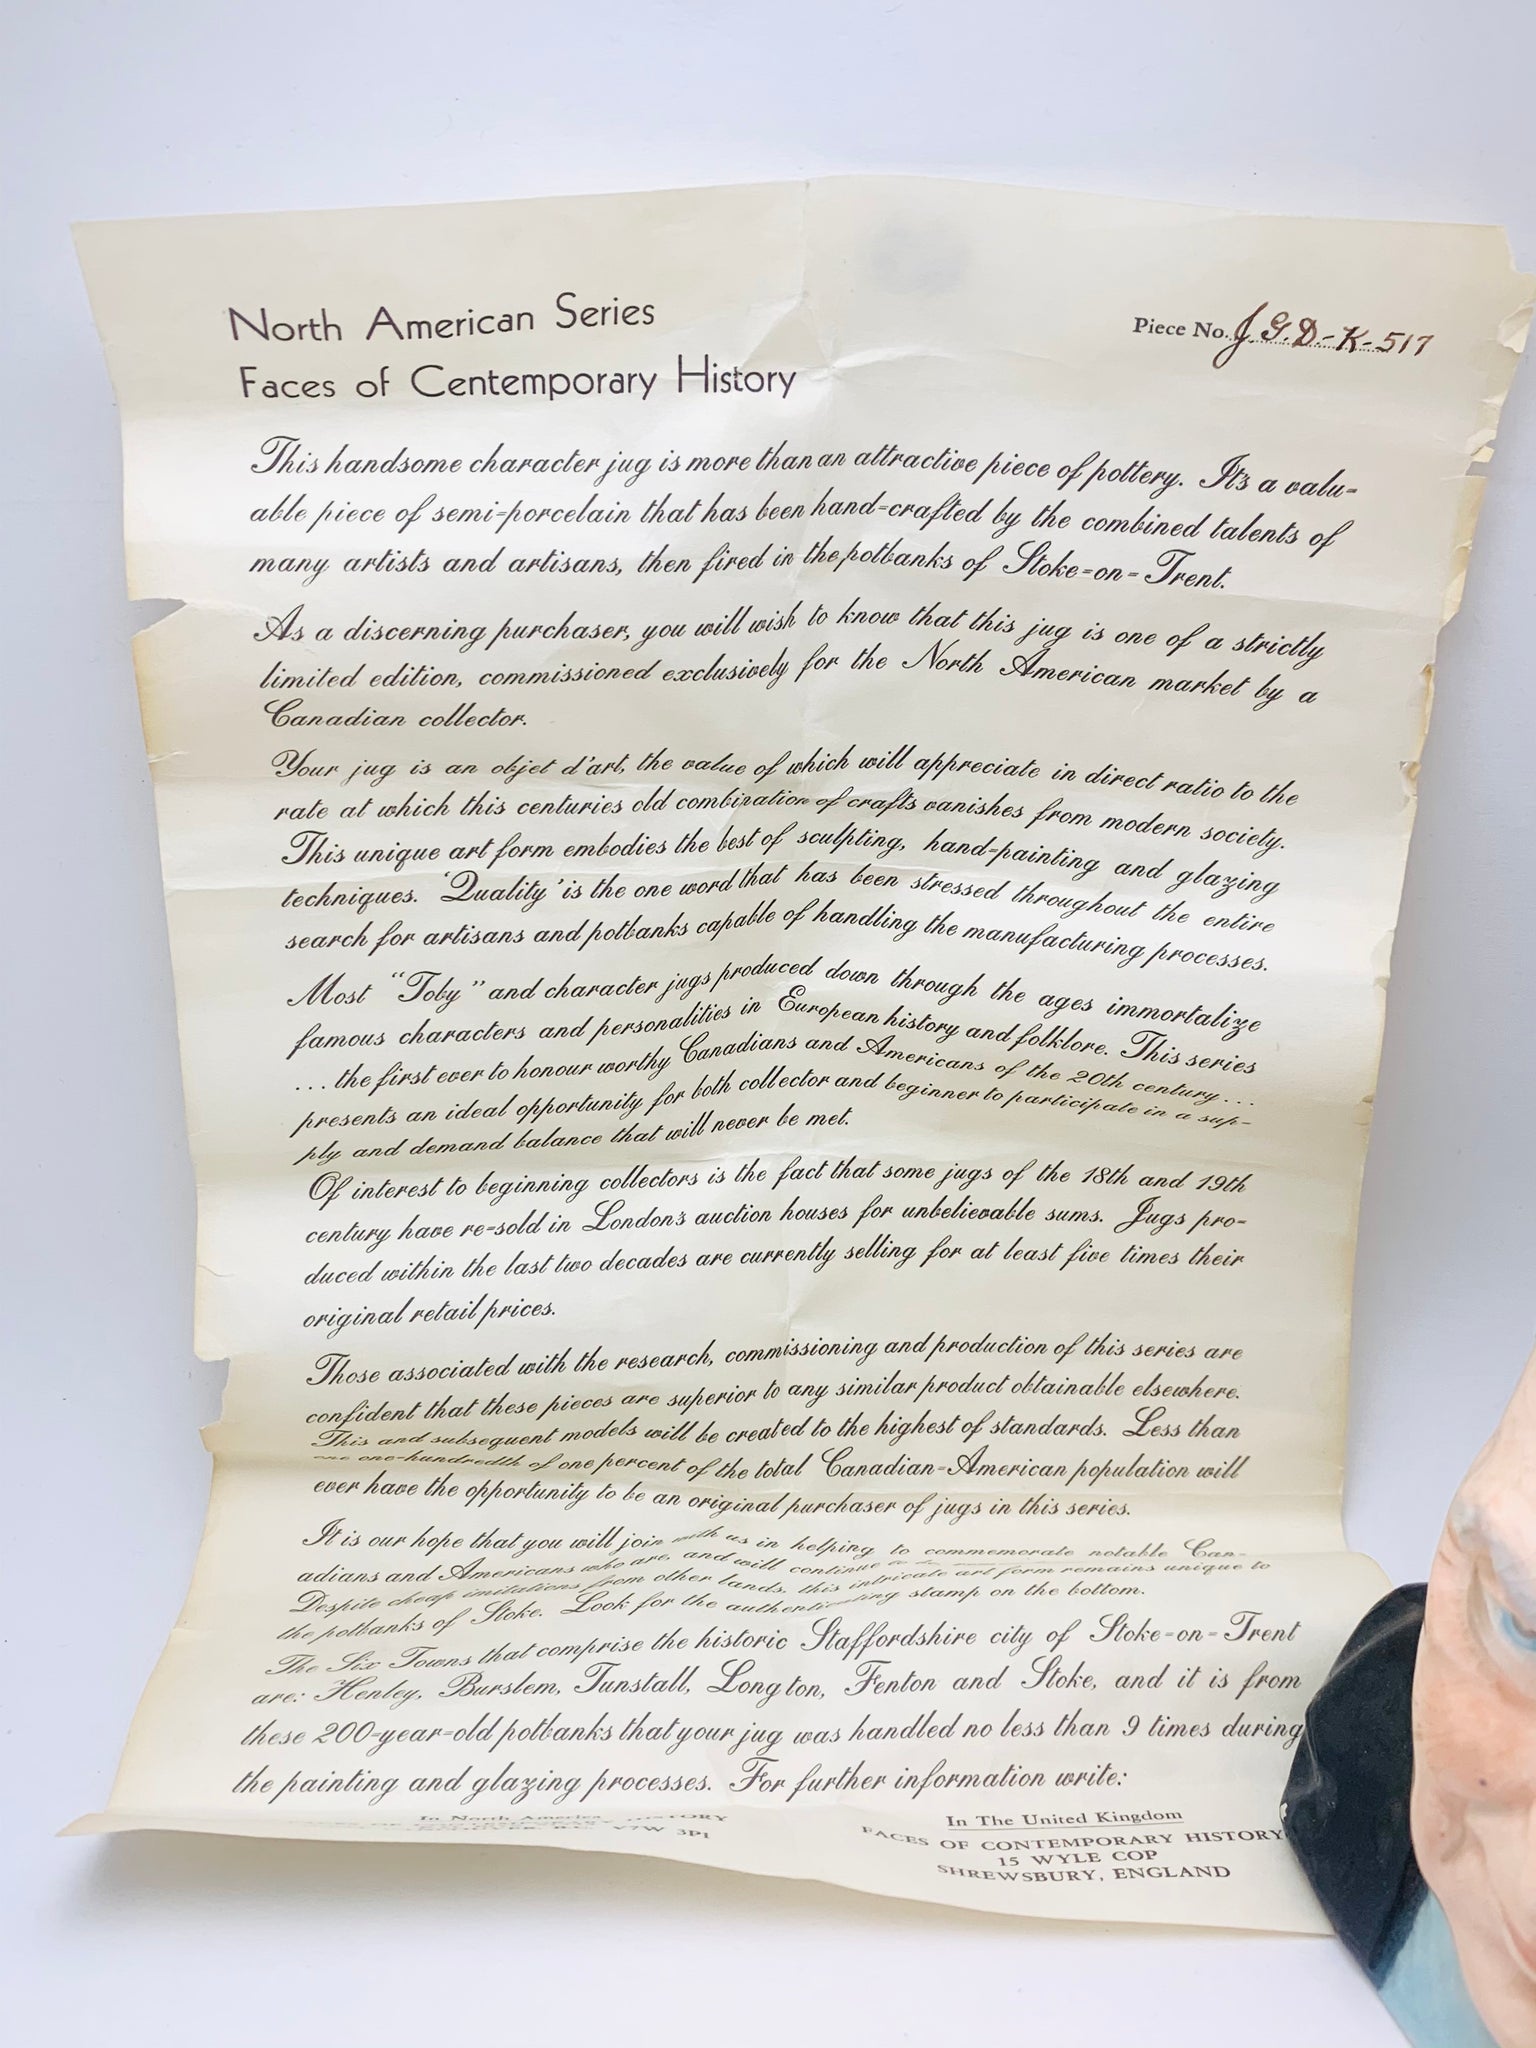 North American Series
Piece No. J.G.D.-K-517
Faces of Contemporary History
This handsome character jug is more than an attractive piece of pottery. It's a valu-
able piece of semi-porcelain that has been hand-crafted by the combined talents of
many artists and artisans, then fired in the potbanks of Stoke-on-Trent.
As a discerning purchaser, you will wish to know that this jug is one of a strictly
limited edition, commissioned exclusively for the North American market by a
Canadian collector.
Your jug is an objet d'art, the value of which will appreciate in direct ratio to the
rate at which this centuries old combination of crafts vanishes from modern society.
This unique art form embodies the best of sculpting, hand-painting and glazing
techniques. 'Quality' is the one word that has been stressed throughout the entire
search for artisans and potbanks capable of handling the manufacturing processes.
Most "Toby" and character jugs produced down through the ages immortalize
famous characters and personalities in European history and folklore. This series
... the first ever to honour worthy Canadians and Americans of the 20th century...
presents an ideal opportunity for both collector and beginner to participate in a sup-
ply and demand balance that will never be met.
Of interest to beginning collectors is the fact that some jugs of the 18th and 19th
century have re-sold in London's auction houses for unbelievable sums. Jugs pro-
duced within the last two decades are currently selling for at least five times their
original retail prices.
Those associated with the research, commissioning and production of this series are
confident that these pieces are superior to any similar product obtainable elsewhere.
This and subsequent models will be created to the highest of standards. Less than
one-hundredth of one percent of the total Canadian-American population will
ever have the opportunity to be an original purchaser of jugs in this series.
It is our hope that you will join with us in helping to commemorate notable Can-
adians and Americans who are, and will continue
Despite cheap imitations from other lands, this intricate art form remains unique to
the potbanks of Stoke. Look for the authenticating stamp on the bottom.
The Six Towns that comprise the historic Staffordshire city of Stoke-on-Trent
are: Henley, Burslem, Tunstall, Longton, Fenton and Stoke, and it is from
these 200-year-old potbanks that your jug was handled no less than 9 times during
the painting and glazing processes. For further information write:
In North America
V7W 3P1
In The United Kingdom
FACES OF CONTEMPORARY HISTORY
15 WYLE COP
SHREWSBURY, ENGLAND